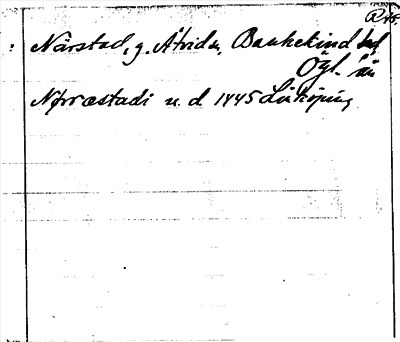 Närstad, g. Åtvid sn, Bankekind hd
Ögl. län
Nørrestadi u. d. 1445 Linköping